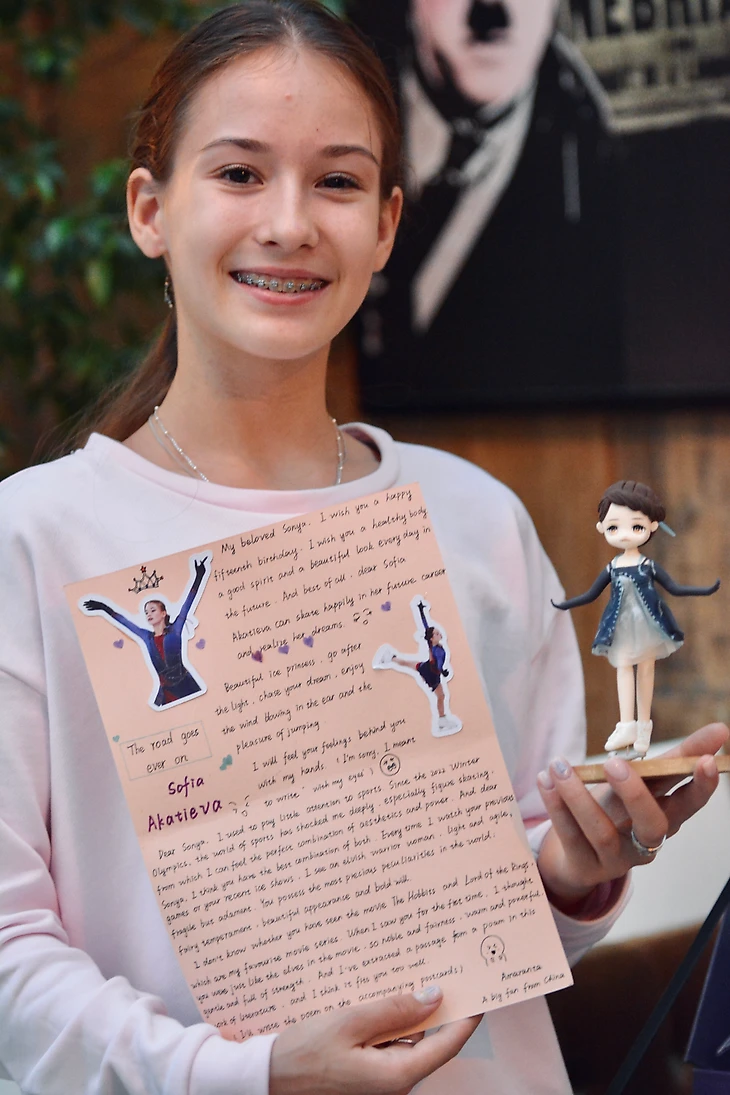 My beloved Sonya. I wish you a happy
fifteenth birthday. I wish you a healthy body
a good spirit and a beautiful look every day in
the future. And best of all, dear Sofia
Akatieva can skate happily in her future career
and realize her dreams.
Beautiful ice princess, go after
the light, chase your dream, enjoy
the wind blowing in the ear and the
pleasure of jumping
The road goes
ever on
Sofia
Akatieva
I will feel your feelings behind you
with my hands. (I'm sorry, I meant
to write, with my eyes)
Dear Sonya, I used to pay little attention to sports. Since the 2022 Winter
Olympics, the world of sports has shocked me deeply, especially figure skating,
from which I can feel the perfect combination of aesthetics and power. And dear
Sonya, I think you have the best combination of both. Every time I watch your previous
games or your recent ice shows, I see an elvish warrior woman, light and agile,
fragile but adamant. You possess the most precious peculiarities in the world:
fairy temperament, beautiful appearance and bold will.
I don't know whether you have seen the movie The Hobbits and Lord of the Rings,
which are my favourite movie series. When I saw you for the first time, I thought
you were just like the elves in the movie, so noble and fairness, warm and powerful,
gentle and full of strength. And I've extracted a passage from a poem in this
work of literature, and I think it fits you too well.
I'll write the poem on the accompanying postcards)
Amaranita
A big fan from China